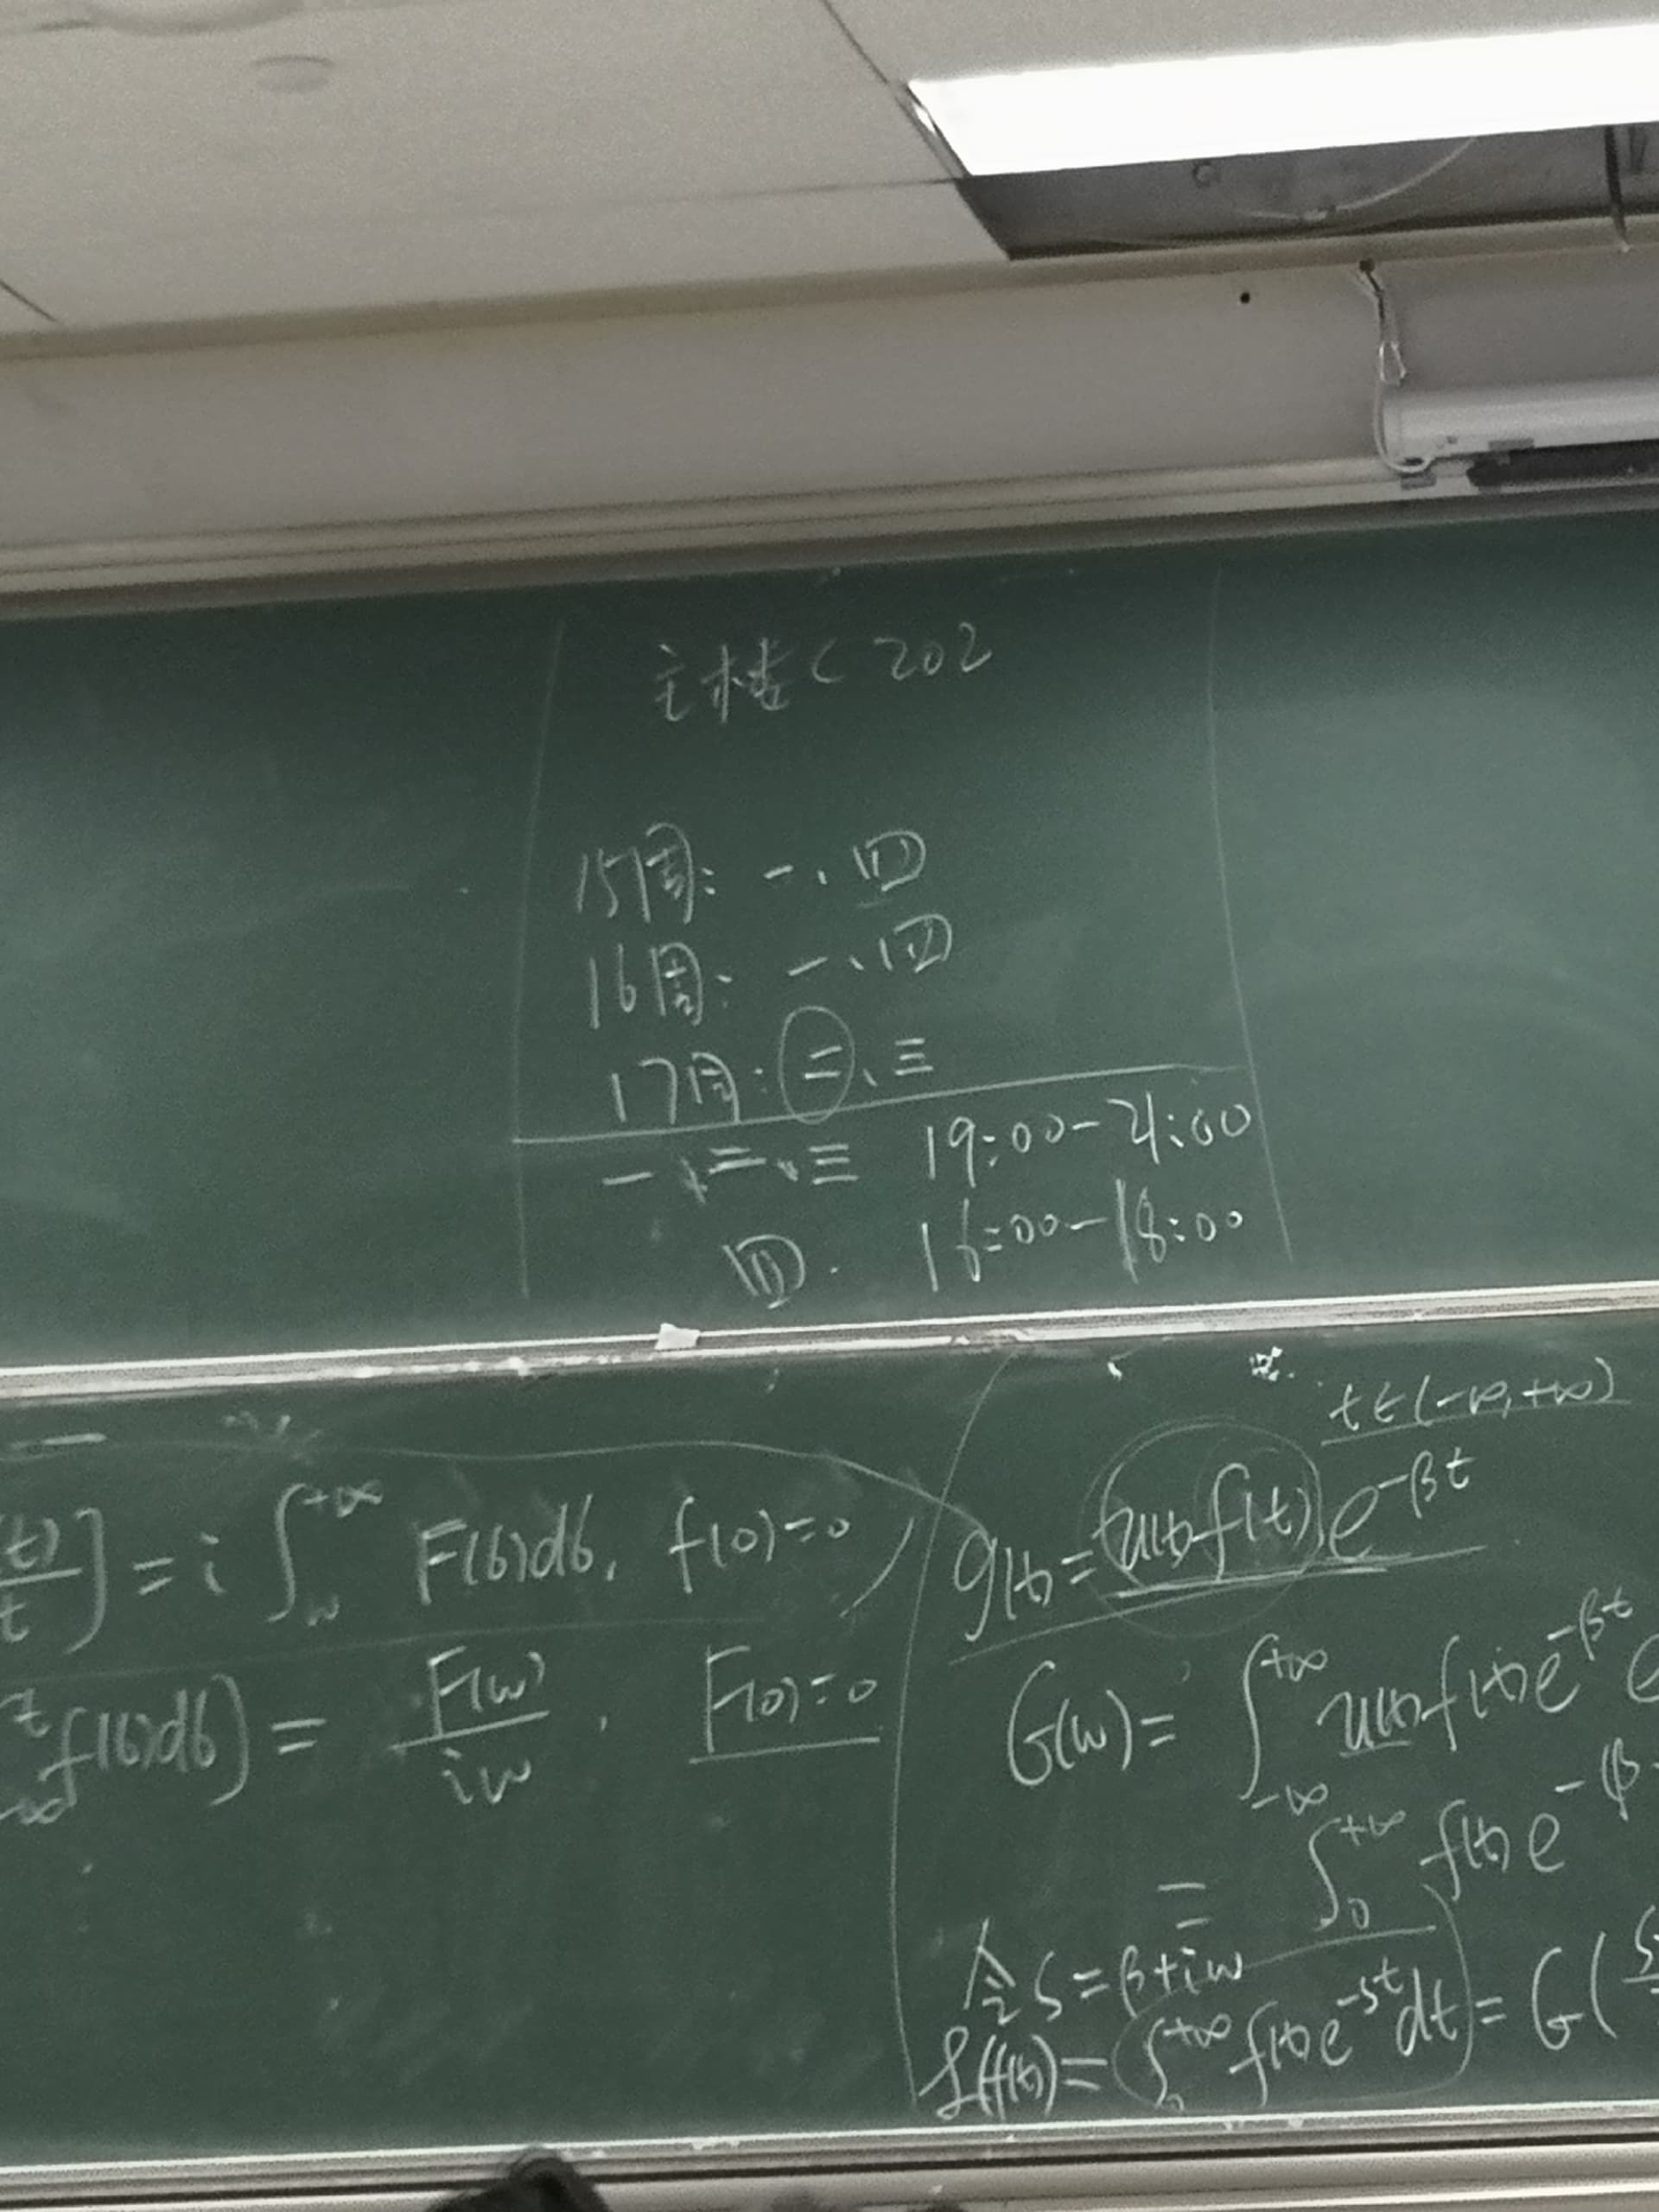 主楼C 202
15周: 一、四
16周: 一、四
17周: 二、三
一、二、三 19:00-21:00
四. 16:00-18:00
(t)/t] = i∫_w^{+∞} F(6)d6, f(0)=0
t f(6)d6) = F(w)/iw . F(0)=0
t∈(-∞,+∞)
g(t)=u(t)f(t)e^{-βt}
G(w)= ∫_{-∞}^{+∞} u(t)f(t)e^{-βt} e
= ∫_0^{+∞} f(t)e^{-(β
令 s=β+iw
ℒ(f(t))=∫_0^{+∞} f(t)e^{-st}dt = G(s